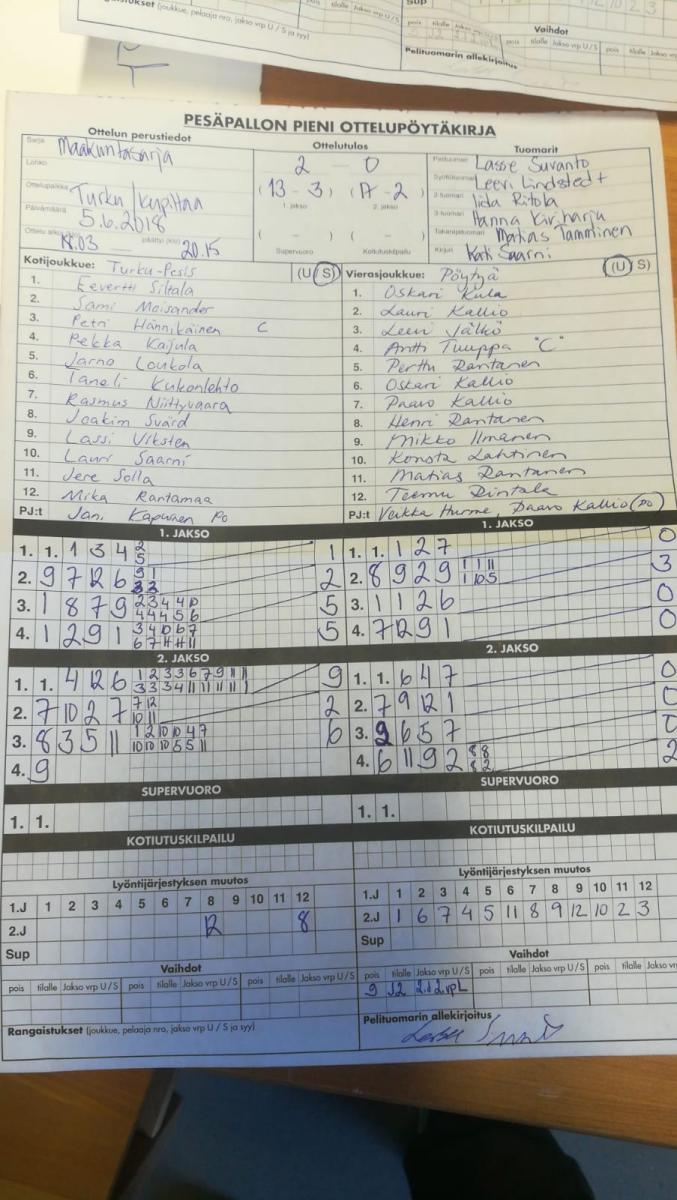 Vaihdot
pois tilalle Jakso vrp U / S
Pelituomarin allekirjoitus
PESÄPALLON PIENI OTTELUPÖYTÄKIRJA
Ottelun perustiedot Ottelutulos Tuomarit
Sarja Maakuntasarja 2 – 0 Pelituomari Lasse Suvanto
Lohko Syöttötuomari Leevi Lindstedt
Ottelupaikka Turku / Kupittaa (13 - 3) (17 - 2) 2-tuomari Iida Ritola
1. jakso 2. jakso
Päivämäärä 5.6.2018 3-tuomari Hanna Kirjharju
Takarajatuomari Matias Tamminen
18.03 päättyi (klo) 20.15 ( - ) ( - ) Kirjuri Kati Saarni
Supervuoro Kotiutuskilpailu
Kotijoukkue: Turku-Pesis (U / S) Vierasjoukkue: Pöytyä (U / S)
1. Eevertti Siltala 1. Oskari Kula
2. Sami Moisander 2. Lauri Kallio
3. Petri Hännikäinen C 3. Leevi Jälkö
4. Pekka Kaijula 4. Antti Tuuppa "C"
5. Jarno Loukola 5. Perttu Rantanen
6. Taneli Kukonlehto 6. Oskari Kallio
7. Rasmus Niittyvaara 7. Paavo Kallio
8. Joakim Svärd 8. Henri Rantanen
9. Lassi Viksten 9. Mikko Ilmanen
10. Lauri Saarni 10. Konsta Lahtinen
11. Jere Solla 11. Matias Rantanen
12. Mika Rantamaa 12. Teemu Rintala
PJ:t Jani Kapunen PO PJ:t Veikka Hurme, Paavo Kallio (PO)
1. JAKSO 1. JAKSO
1. 1. 1 3 4 2 5 1 1. 1. 1 2 7 0
2. 9 7 12 6 2 2. 8 9 2 9 1 1 11 1 10 5 3
3. 1 8 7 9 2 3 4 4 10 4 4 4 5 6 5 3. 1 1 2 6 0
4. 1 2 9 1 3 4 10 6 7 5 4. 7 12 9 1 0
2. JAKSO 2. JAKSO
1. 1. 4 12 6 1 2 3 3 6 7 9 11 11 3 3 3 4 11 11 11 11 1 9 1. 1. 6 4 7 0
2. 7 10 2 7 7 12 10 11 2 2. 7 9 12 1 0
3. 8 3 5 11 1 2 10 10 4 7 10 10 10 5 5 11 6 3. 9 6 5 7 0
4. 9 4. 6 11 9 2 8 8 8 2 2
SUPERVUORO SUPERVUORO
1. 1. 1. 1.
KOTIUTUSKILPAILU KOTIUTUSKILPAILU
Lyöntijärjestyksen muutos Lyöntijärjestyksen muutos
1.J 1 2 3 4 5 6 7 8 9 10 11 12 1.J 1 2 3 4 5 6 7 8 9 10 11 12
2.J 12 8 2.J 1 6 7 4 5 11 8 9 12 10 2 3
Sup Sup
Vaihdot Vaihdot
pois tilalle Jakso vrp U / S pois tilalle Jakso vrp U / S pois tilalle Jakso vrp U / S pois tilalle Jakso vrp U / S pois tilalle Jakso vrp U / S pois tilalle Jakso vrp
9 12
Rangaistukset (joukkue, pelaaja nro, jakso vrp U / S ja syy) Pelituomarin allekirjoitus